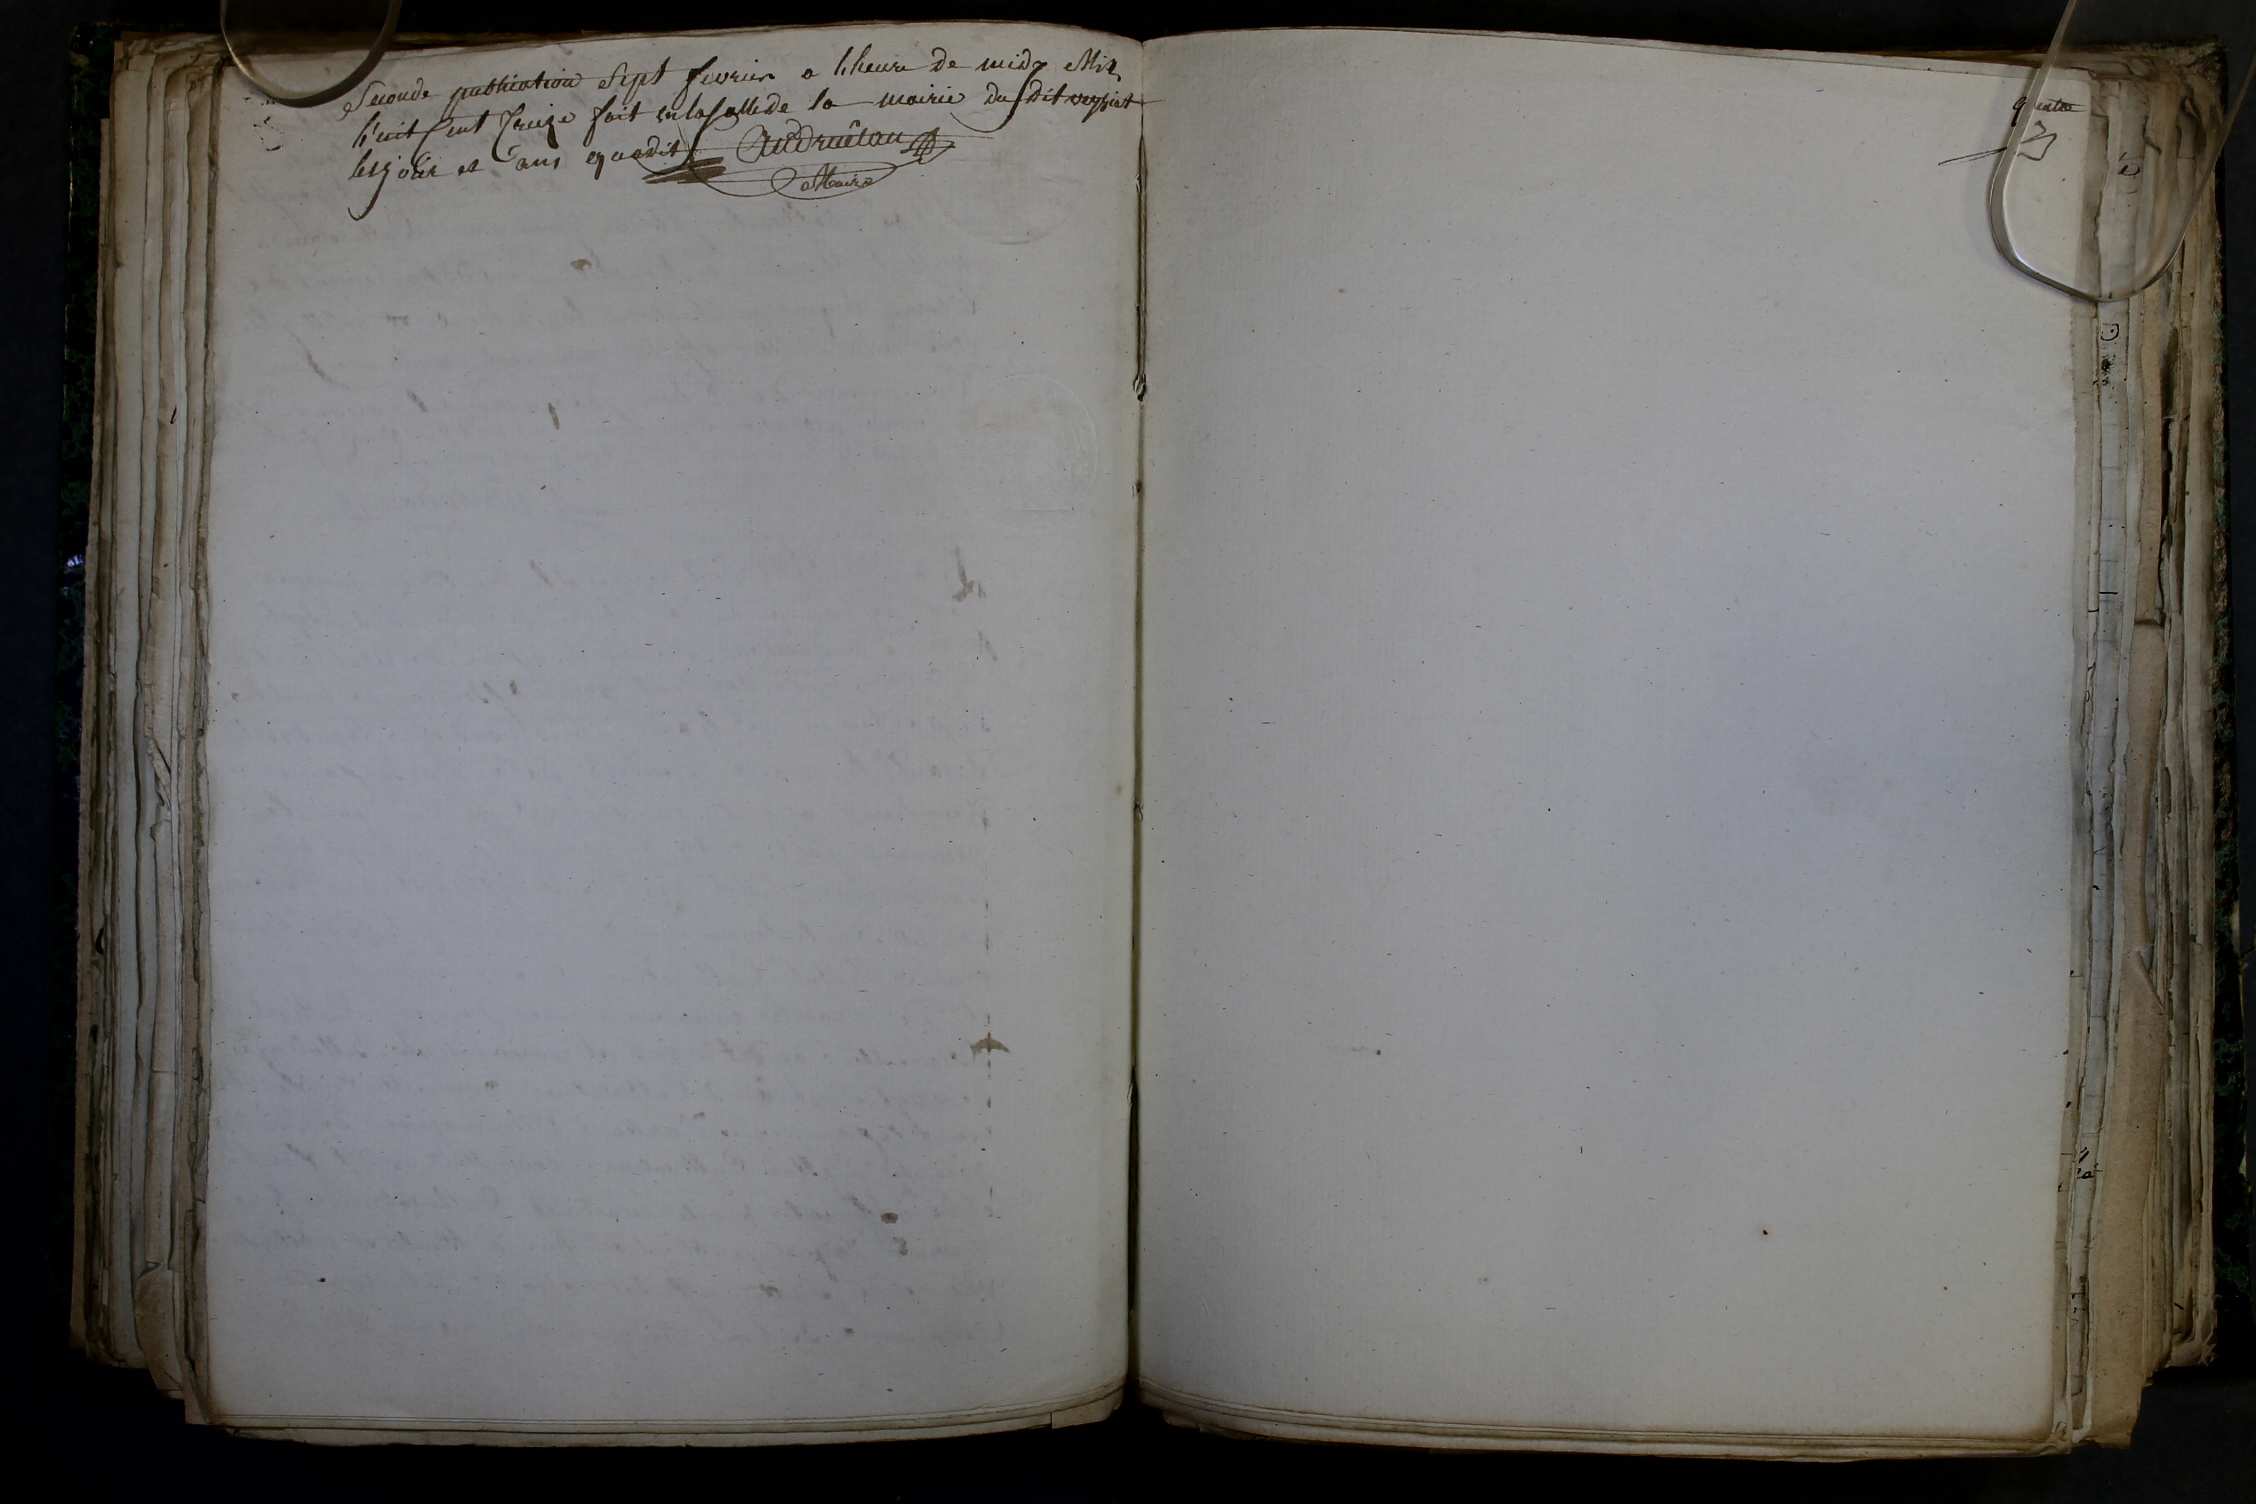 Seconde publication Sept fevrier a lheure de midy Mil
huit Cent treize fait en la Salle de la mairie du dit veyziat
les jour et ans que dit
Maire
quatre